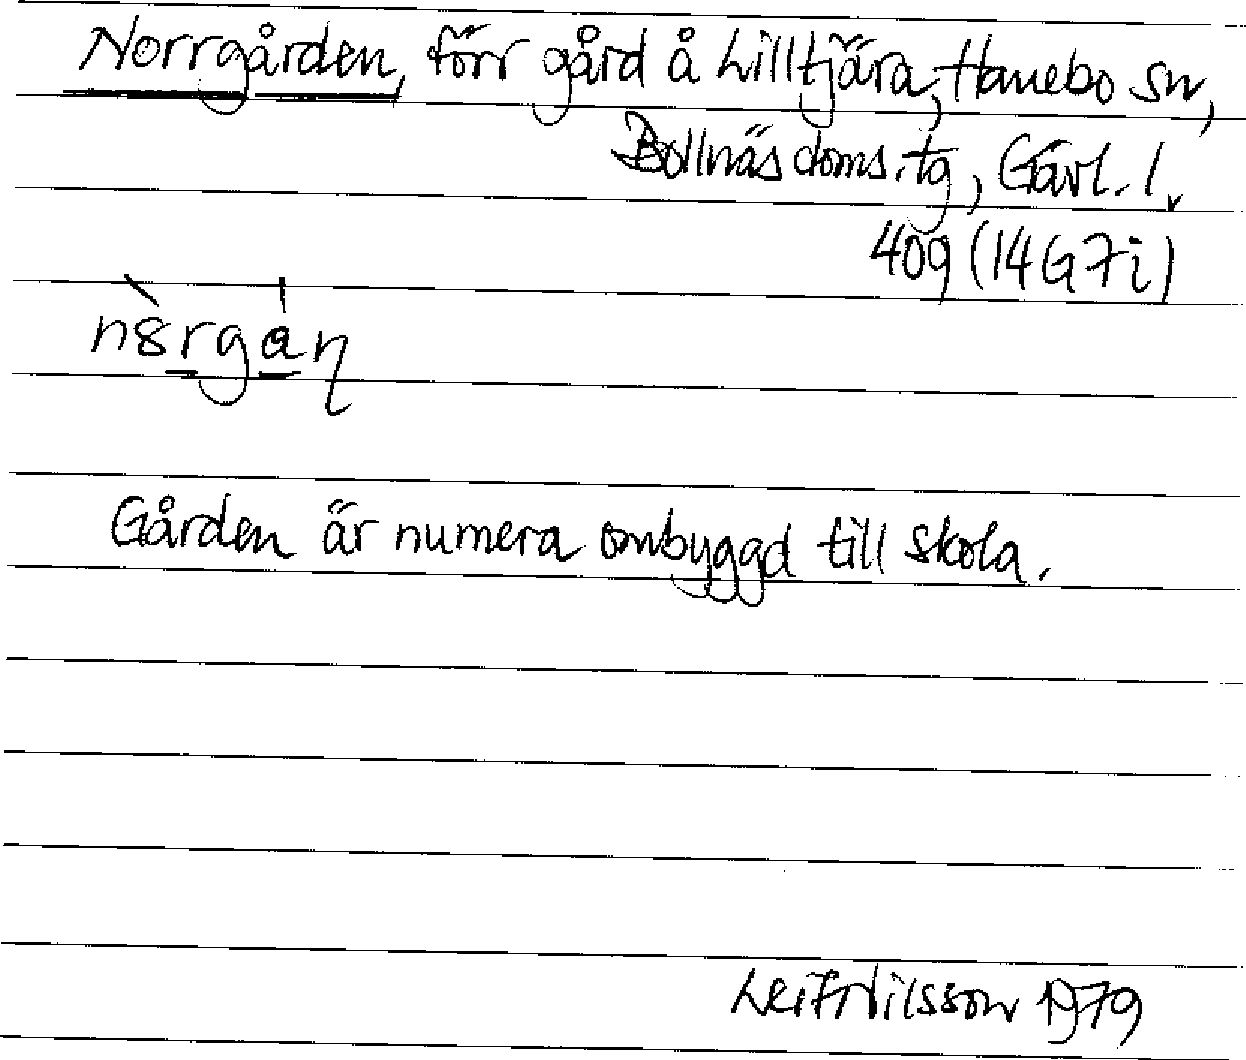 Norrgården, förr gård å Lilltjära, Hanebo sn,
Bollnäs doms.tg, Gävl. l.
409 (14G7i)
Gården är numera ombyggd till skola.
Leif Nilsson 1979